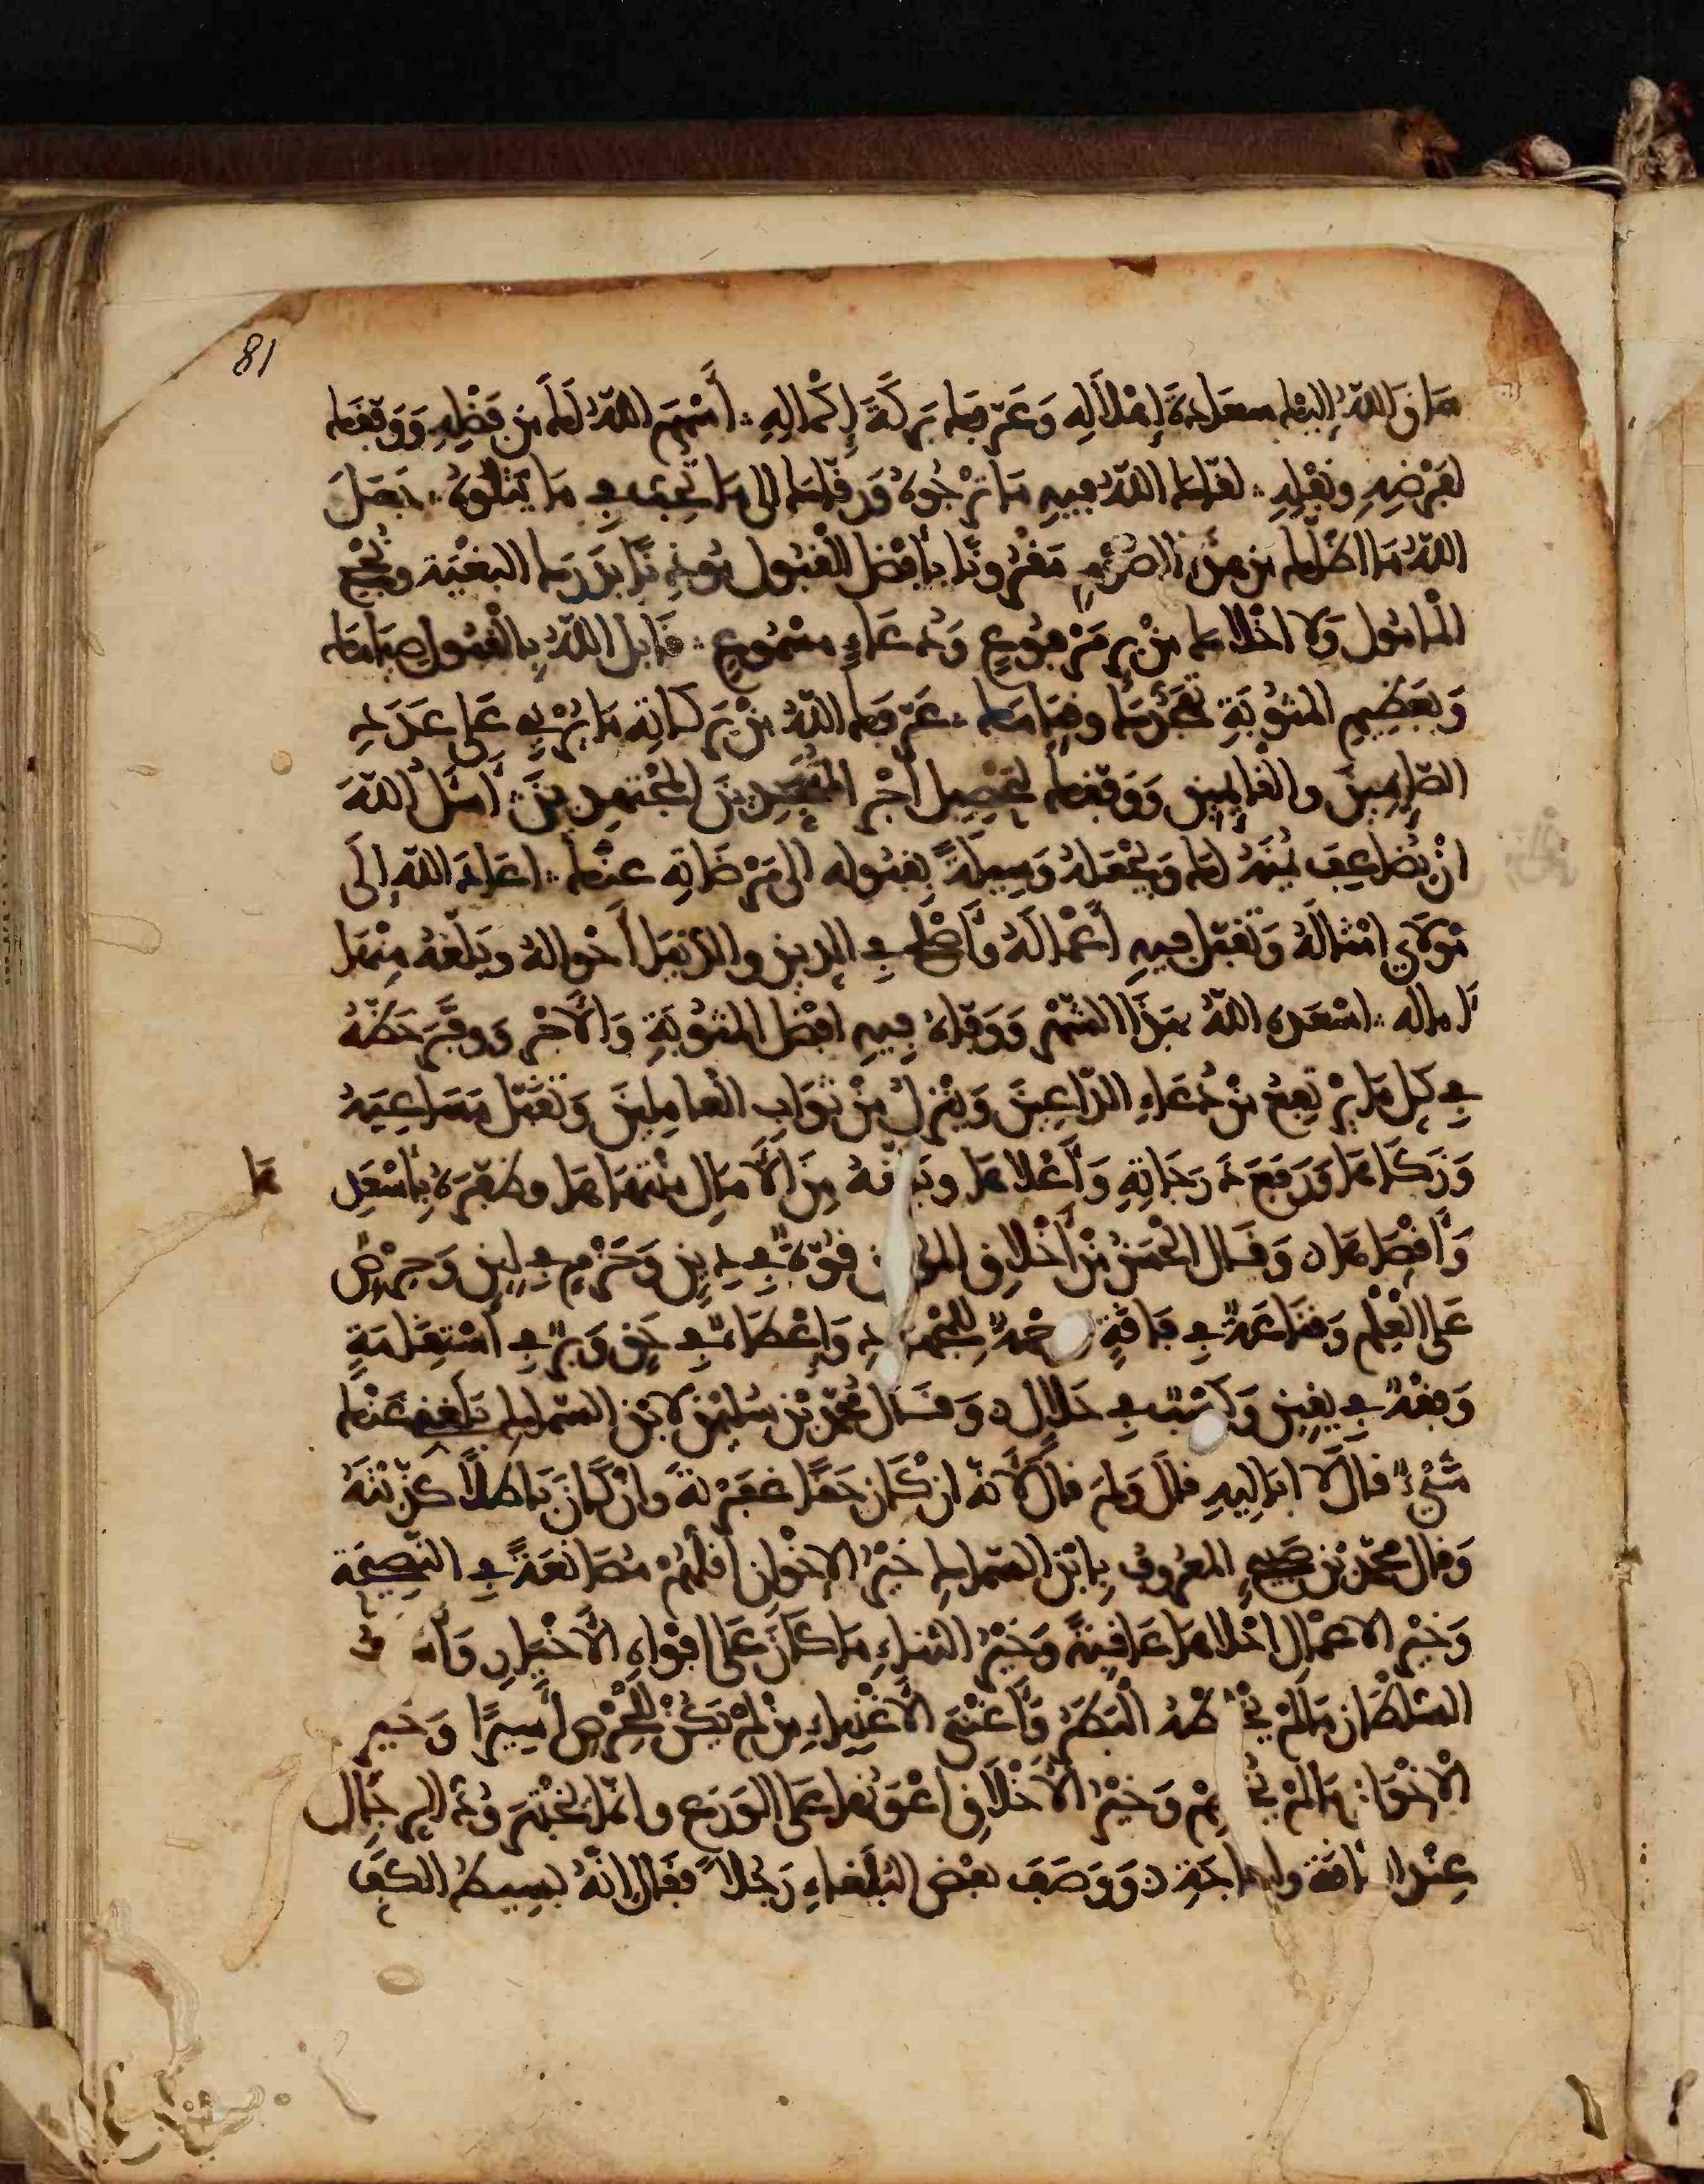 81
ساق اللهُ إلينا سعادةَ إهلاله وعرّفنا بركةَ إكماله ∴ أسْهم اللهُ لنا من فضله ووفقنا
لفرضه ونفله ∴ لقانا اللهُ فيه ما نرجوهُ ورقانا الى ما نحب في ما يتلوهُ ∴ جعل
اللهُ ما اظلنا من هذا الصوم مقرونًا بأفضل القبول موذنًا بدرك البغية ونجح
المامول ولا اخلانا من بر مرفوع ودعاءٍ مسموعٍ ∴ قابل اللهُ بالقبول صيامنا
وبعظيم المثوبة تهجدنا وقيامنا ∴ عرفنا اللهُ من بركاته ما يُربي على عدد
الصايمين والقايمين ووفقنا لتحصيل أجر المتهجدين المجتهدين ∴ أسئل اللهَ
انْ يُضاعف يُمنَهُ لنا ويجْعلهُ وسيلةً بقبوله الى مرضاته عنا ∴ اعاد الله إلى
مولاي امثالَهُ وتقبل فيه أعمالَهُ وأصْلح في الدين والدنيا أحْوالهُ وبلغهُ منْها
اماله ∴ اسْعده اللهُ بهذا الشهْر ووفاهُ فيه افضل المثوبة والأجْر ووفر حظهُ
في كل ما يرْتفع من دُعاء الداعين وينْزل منْ ثواب العاملين وتقبل مساعيَهُ
وزكاها ورفع درجاته وأعْلاها وبلغهُ من الآمال منْتهاها وظفرهُ بأسْعد
ها
وأفضلها ٥ وقال الحسنُ من أخْلاق المومن قوّةٌ في دين وحزْم في لين وحرْصٌ
على العلْم وقناعةٌ في فاقةٍ ورحْمةٌ للمجْهود وإعْطاءٌ في حق وبرٌّ في أسْتقامةٍ
وفقْهٌ في يقين وكسْبٌ في حلال ٥ وقال محمّد بْن سليمن لابْن السماك بلغني عنْك
شيْءٌ قال لا ابالِيهِ قال ولم قال لأنّهُ ان كان حقًّا غفرْتهُ وانْ كان باطلاً كذّبْتهُ
وقال محمّد بْن صبيح المعروف بابْن السماك خيْرُ الإخْوان أقلّهُمْ مُصانعةً في النصيحة
وخيْر الاعمال احْلاها عاقبةً وخيْرُ الثناء ما كان على افْواه الأخْيار وأ
السّلْطان ما لمْ يخالطْهُ البطرُ وأغْنى الأغْنياء من لمْ يكُنْ للحرْص أسيرًا وخير
الإخْوان ما لمْ يخ وخيْرُ الأخْلاق اعْوَنُها على الورع وانّما يُخْتبر وُدُّ الرجال
عنْد الفاقة والحاجة ٥ ووصف بعْض البُلغاء رجُلاً فقال إنّهُ بسيطُ الكف